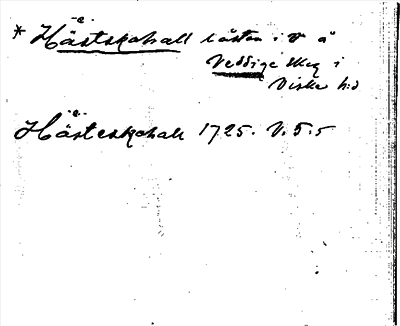 * Hästskohall i östra i V å
Veddige skog i
Viske h:d
Hästeskohall 1725. V. 5:5